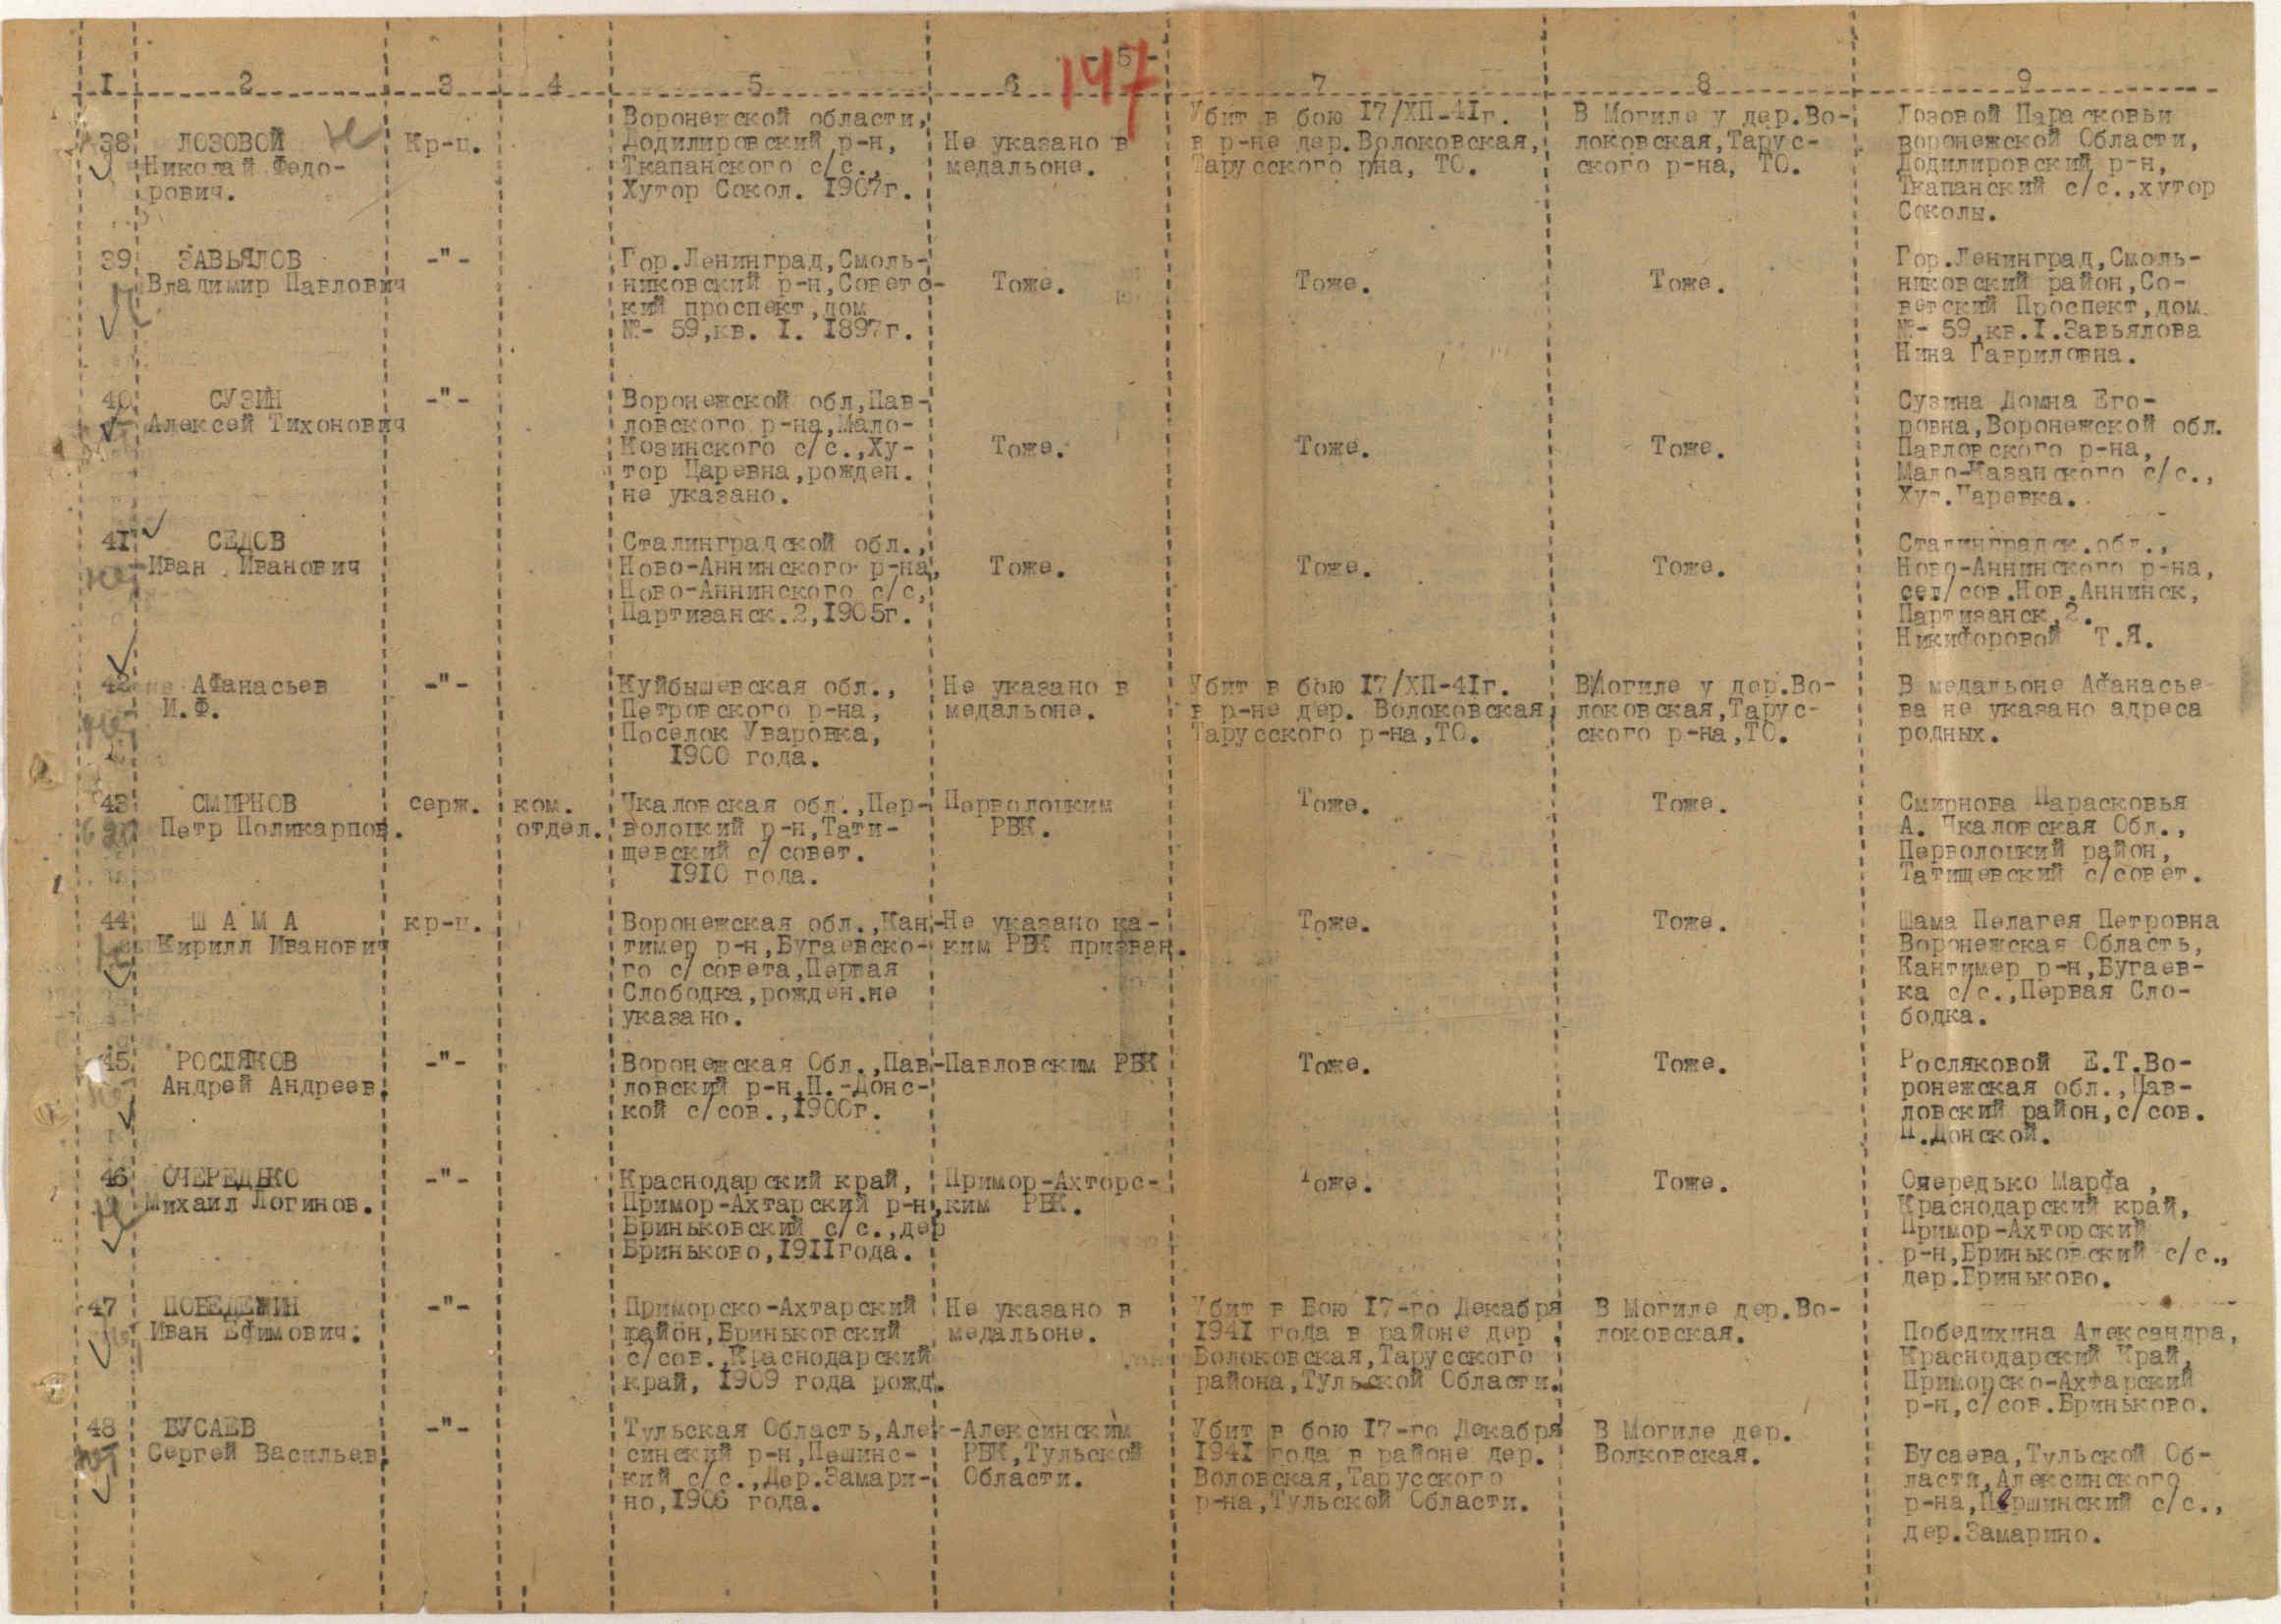 - 5 -
147
I 2 3 4 5 6 7 8 9
38 ЛОЗОВОЙ
Николай Федо-
рович.
Кр-ц.
Воронежской области,
Додилировский р-н,
Ткапанского с/с.,
Хутор Сокол. 1907г.
Не указано в
медальоне.
Убит в бою 17/ХП-41г.
в р-не дер. Волоковская,
Тарусского р/на, ТО.
В Могиле у дер.Во-
локовская, Тарус-
ского р-на, ТО.
Лозовой Парасковьи
воронежской Области,
Додилировский р-н,
Ткапанский с/с.,хутор
Соколы.
39 ЗАВЬЯЛОВ
Владимир Павлович
-"-
Гор.Ленинград,Смоль-
никовский р-н,Советс-
кий проспект,дом
№- 59,кв. I. 1897г.
Тоже.
Тоже.
Тоже.
Гор.Ленинград,Смоль-
никовский район,Со-
ветский Проспект,дом.
№- 59,кв.I.Завьялова
Нина Гавриловна.
40 СУЗИН
Алексей Тихонович
-"-
Воронежской обл,Пав-
ловского р-на,Мало-
Козинского с/с.,Ху-
тор Царевна,рожден.
не указано.
Тоже.
Тоже.
Тоже.
Сузина Домна Его-
ровна,Воронежской обл.
Павловского р-на,
Мало-Казанского с/с.,
Хут.Царевка.
41 СЕДОВ
Иван Иванович
Сталинградской обл.,
Ново-Аннинского р-на,
Ново-Аннинского с/с,
Партизанск.2,1905г.
Тоже.
Тоже.
Тоже.
Сталинградск.обл.,
Ново-Аннинского р-на,
сел/сов.Нов.Аннинск,
Партизанск,2.
Никифоровой Т.Я.
42 Афанасьев
И.Ф.
-"-
Куйбышевская обл.,
Петровского р-на,
Поселок Уваровка,
1900 года.
Не указано в
медальоне.
Убит в бою 17/ХП-41г.
в р-не дер. Волоковская,
Тарусского р-на,ТО.
В Могиле у дер.Во-
локовская,Тарус-
ского р-на,ТО.
В медальоне Афанасье-
ва не указано адреса
родных.
43 СМИРНОВ
Петр Поликарпов.
серж.
ком.
отдел.
Чкаловская обл.,Пер-
волоцкий р-н,Тати-
щевский с/совет.
1910 года.
Перволоцким
РВК.
Тоже.
Тоже.
Смирнова Парасковья
А. Чкаловская Обл.,
Перволоцкий район,
Татищевский с/совет.
44 Ш А М А
Кирилл Иванович
кр-ц.
Воронежская обл.,Кан-
тимер р-н,Бугаевско-
го с/совета,Первая
Слободка,рожден.не
указано.
Не указано ка-
ким РВК призван.
Тоже.
Тоже.
Шама Пелагея Петровна
Воронежская Область,
Кантимер р-н,Бугаев-
ка с/с.,Первая Сло-
бодка.
45 РОСЛЯКОВ
Андрей Андреев.
-"-
Воронежская Обл.,Пав-
ловский р-н,П.-Донс-
кой с/сов.,1900г.
Павловским РВК
Тоже.
Тоже.
Росляковой Е.Т.Во-
ронежская обл.,Пав-
ловский район,с/сов.
П.Донской.
46 ОЧЕРЕДЬКО
Михаил Логинов.
-"-
Краснодарский край,
Примор-Ахтарский р-н,
Бриньковский с/с.,дер
Бриньково,1911года.
Примор-Ахторс-
ким РВК.
Тоже.
Тоже.
Очередько Марфа ,
Краснодарский край,
Примор-Ахторский
р-н,Бриньковский с/с.,
дер.Бриньково.
47 ПОБЕДЕЖИН
Иван Ефимович.
-"-
Приморско-Ахтарский
район,Бриньковский
с/сов.,Краснодарский
край, 1909 года рожд.
Не указано в
медальоне.
Убит в Бою 17-го Декабря
1941 года в районе дер
Волоковская,Тарусского
района,Тульской Области.
В Могиле дер.Во-
локовская.
Победихина Александра,
Краснодарский Край,
Приморско-Ахтарский
р-н,с/сов.Бриньково.
48 БУСАЕВ
Сергей Васильев.
-"-
Тульская Область,Алек-
синский р-н,Пешинс-
кий с/с.,Дер.Замари-
но,1906 года.
Алексинским
РВК,Тульской
Области.
Убит в бою 17-го Декабря
1941 года в районе дер.
Воловская,Тарусского
р-на,Тульской Области.
В Могиле дер.
Волковская.
Бусаева,Тульской Об-
ласти,Алексинского
р-на,Першинский с/с.,
дер.Замарино.